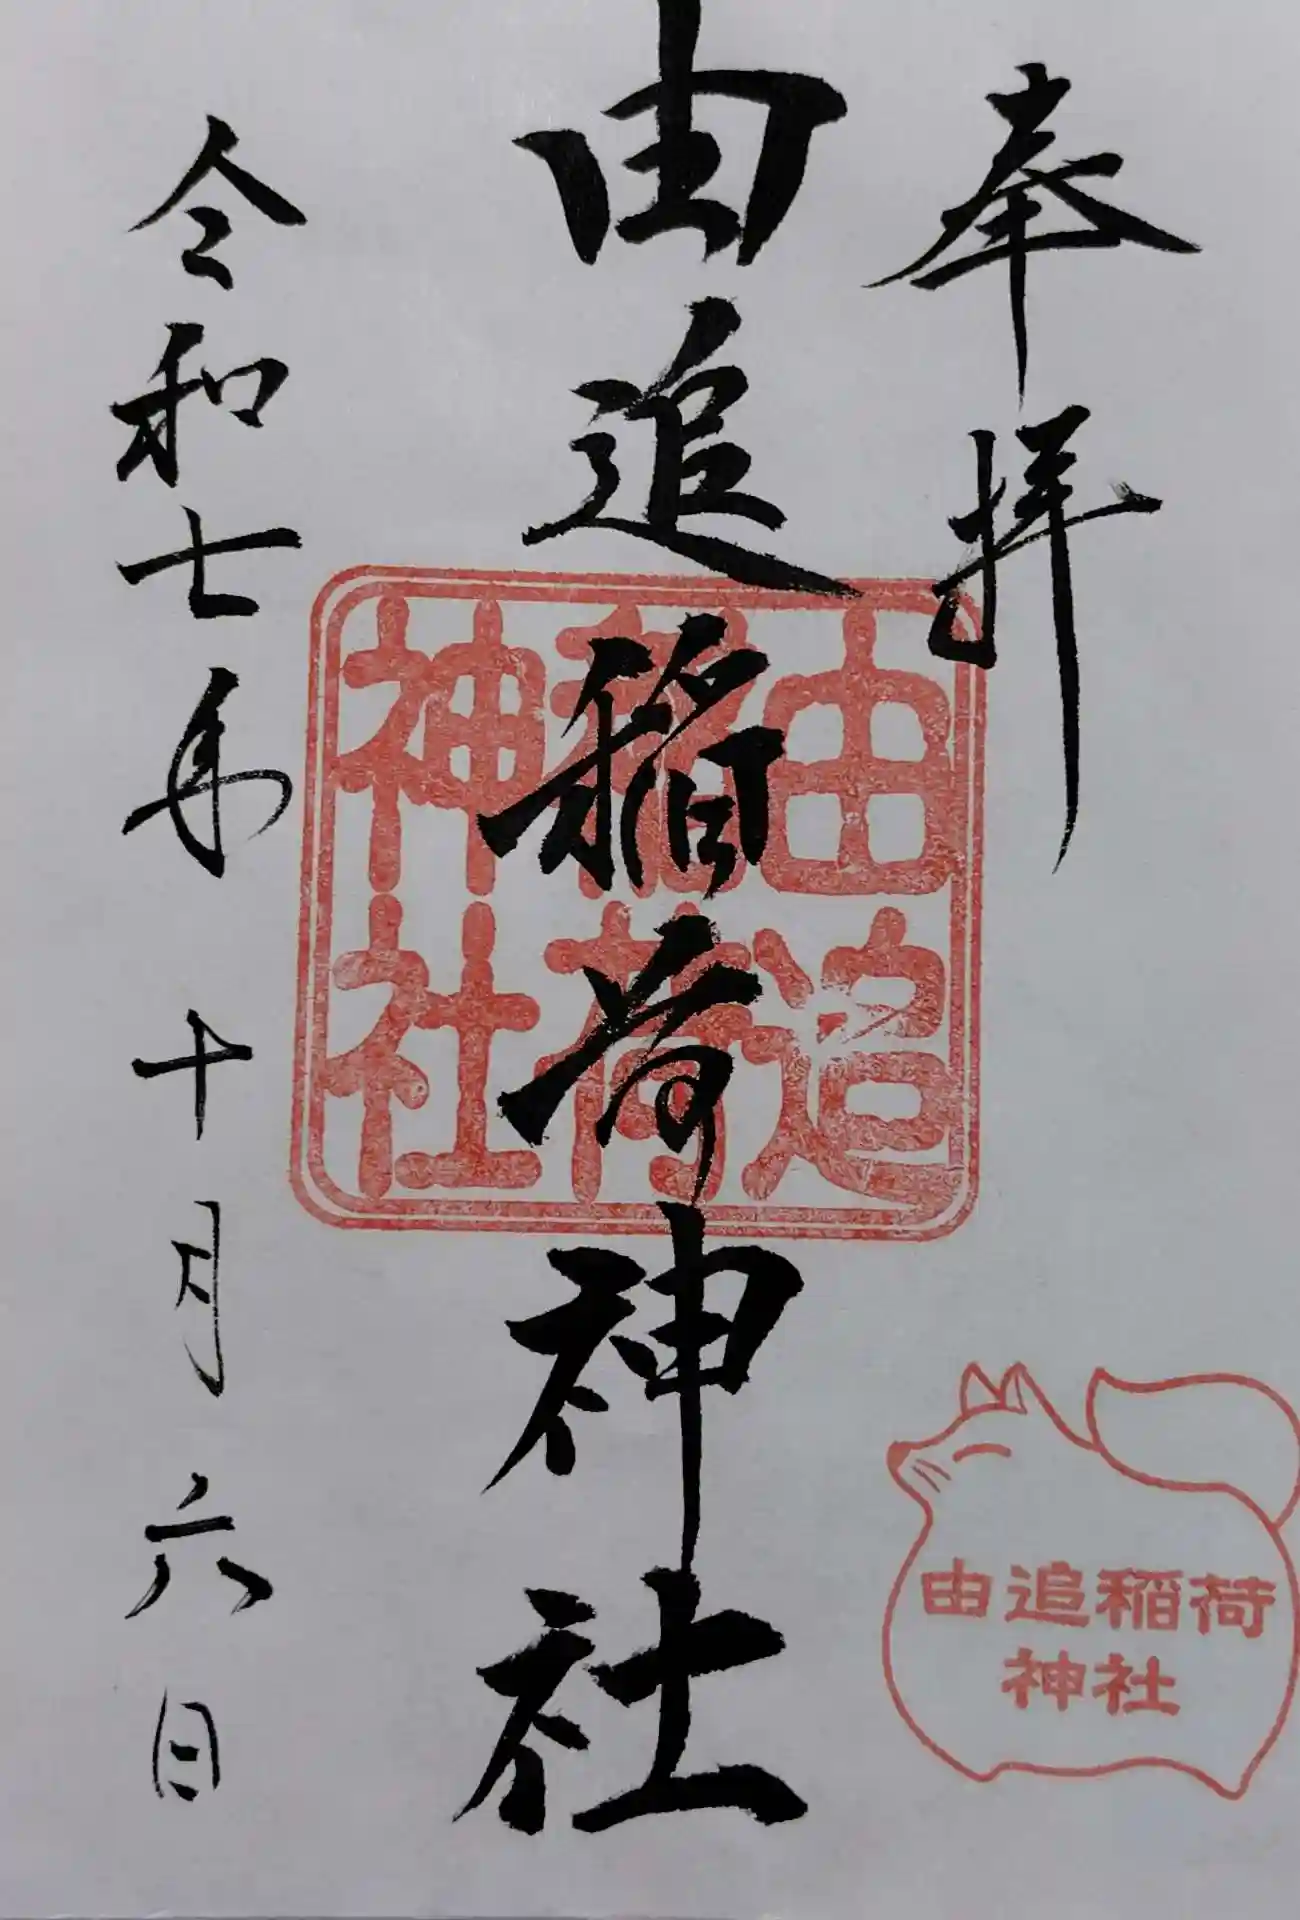 奉拝
由追稲荷神社
由追
稲荷
神社
令和七年 十月 六日
由追稲荷
神社